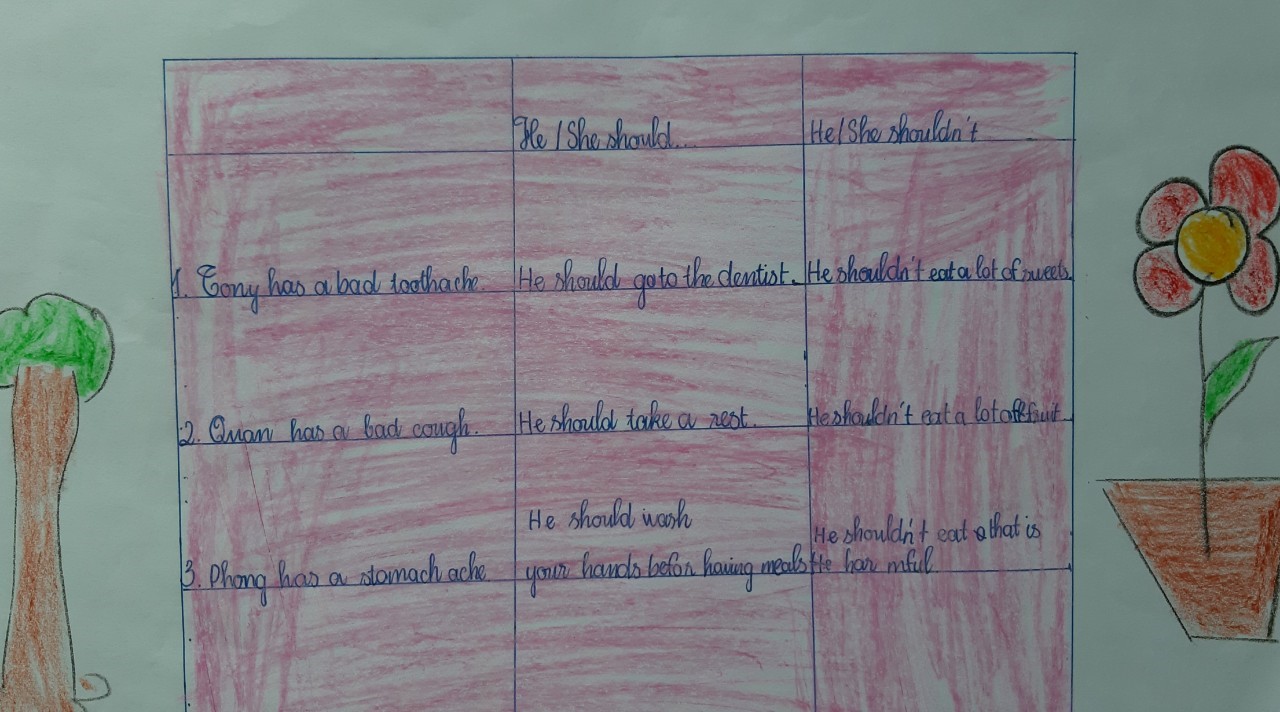 He / She should...
He / She shouldn't
1. Tony has a bad toothache
He should go to the dentist.
He shouldn't eat a lot of sweets.
2. Quan has a bad cough.
He should take a rest.
He shouldn't eat a lot of fruit
3. Phong has a stomach ache
He should wash
your hands befor having meals
He shouldn't eat that is
He har mful